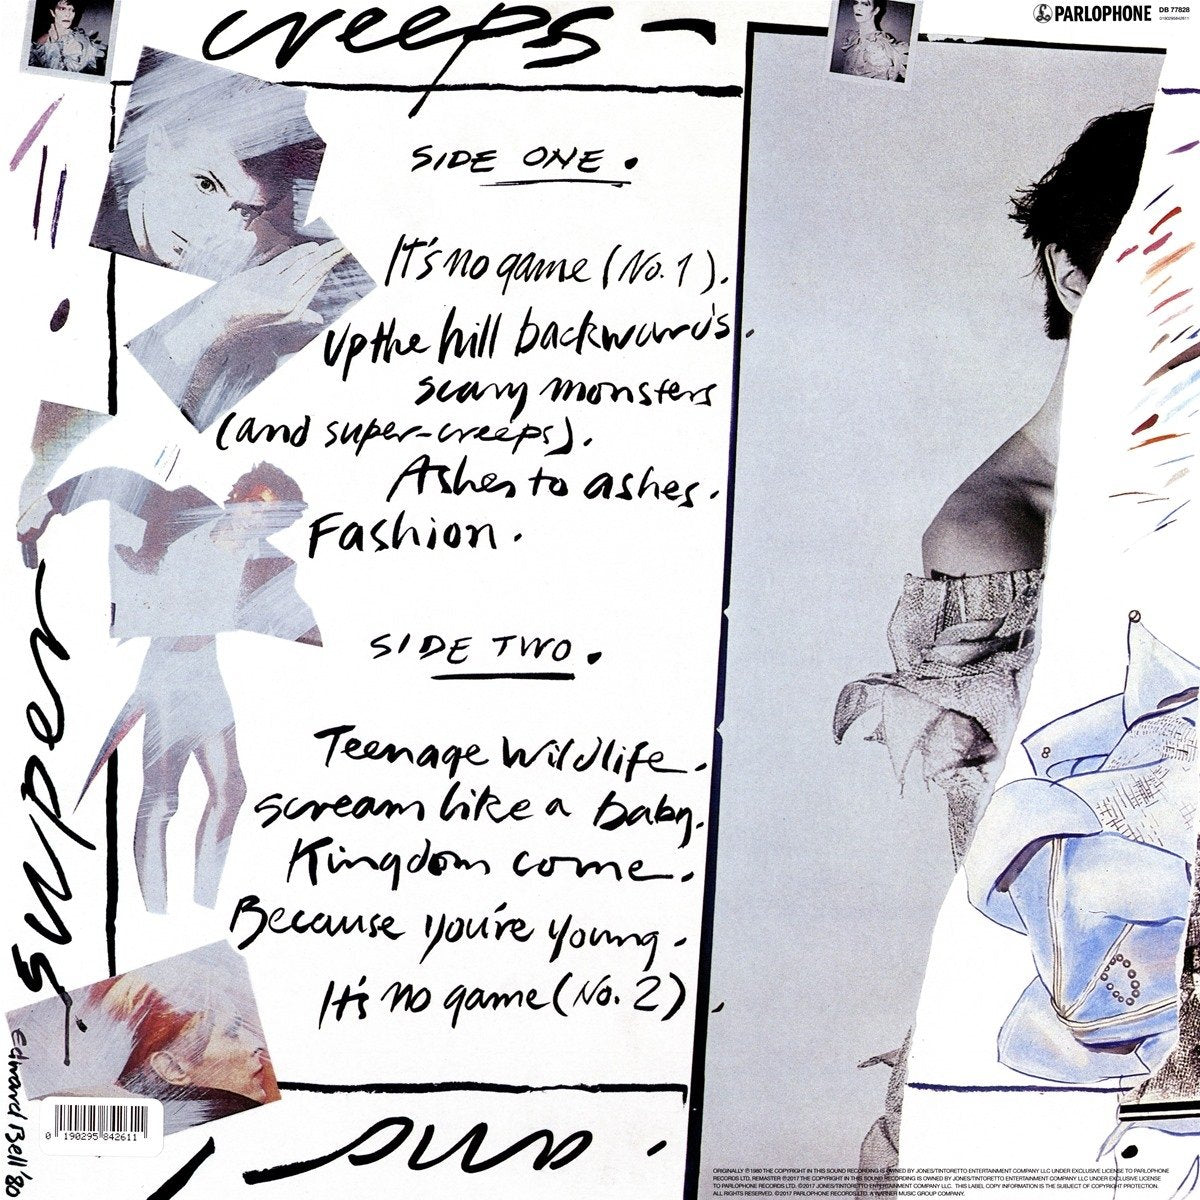 creeps -
PARLOPHONE DB 77828
0190295842611
SIDE ONE.
It's no game (No. 1).
Up the hill backwards.
Scary monsters
(and super-creeps).
Ashes to ashes.
Fashion.
SIDE TWO.
Teenage Wildlife.
Scream like a Baby.
Kingdom come.
Because you're young.
It's no game (No. 2).
super
Edward Bell '80
0 190295 842611
and.
ORIGINALLY ℗1980 THE COPYRIGHT IN THIS SOUND RECORDING IS OWNED BY JONES/TINTORETTO ENTERTAINMENT COMPANY LLC UNDER EXCLUSIVE LICENSE TO PARLOPHONE
RECORDS LTD, REMASTER ℗2017 THE COPYRIGHT IN THIS SOUND RECORDING IS OWNED BY JONES/TINTORETTO ENTERTAINMENT COMPANY LLC UNDER EXCLUSIVE LICENSE
TO PARLOPHONE RECORDS LTD. ©2017 JONES/TINTORETTO ENTERTAINMENT COMPANY LLC. THIS LABEL COPY INFORMATION IS THE SUBJECT OF COPYRIGHT PROTECTION.
ALL RIGHTS RESERVED. ©2017 PARLOPHONE RECORDS LTD. A WARNER MUSIC GROUP COMPANY.